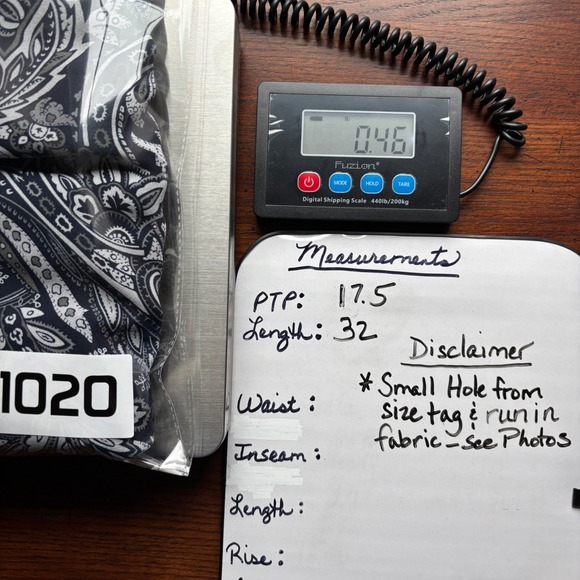 0.46
Fuzion®
MODE HOLD TARE
Digital Shipping Scale 440lb/200kg
Measurements
PTP: 17.5
Length: 32
Disclaimer
* Small Hole from
size tag & run in
fabric - see Photos
1020
Waist:
Inseam:
Length:
Rise: